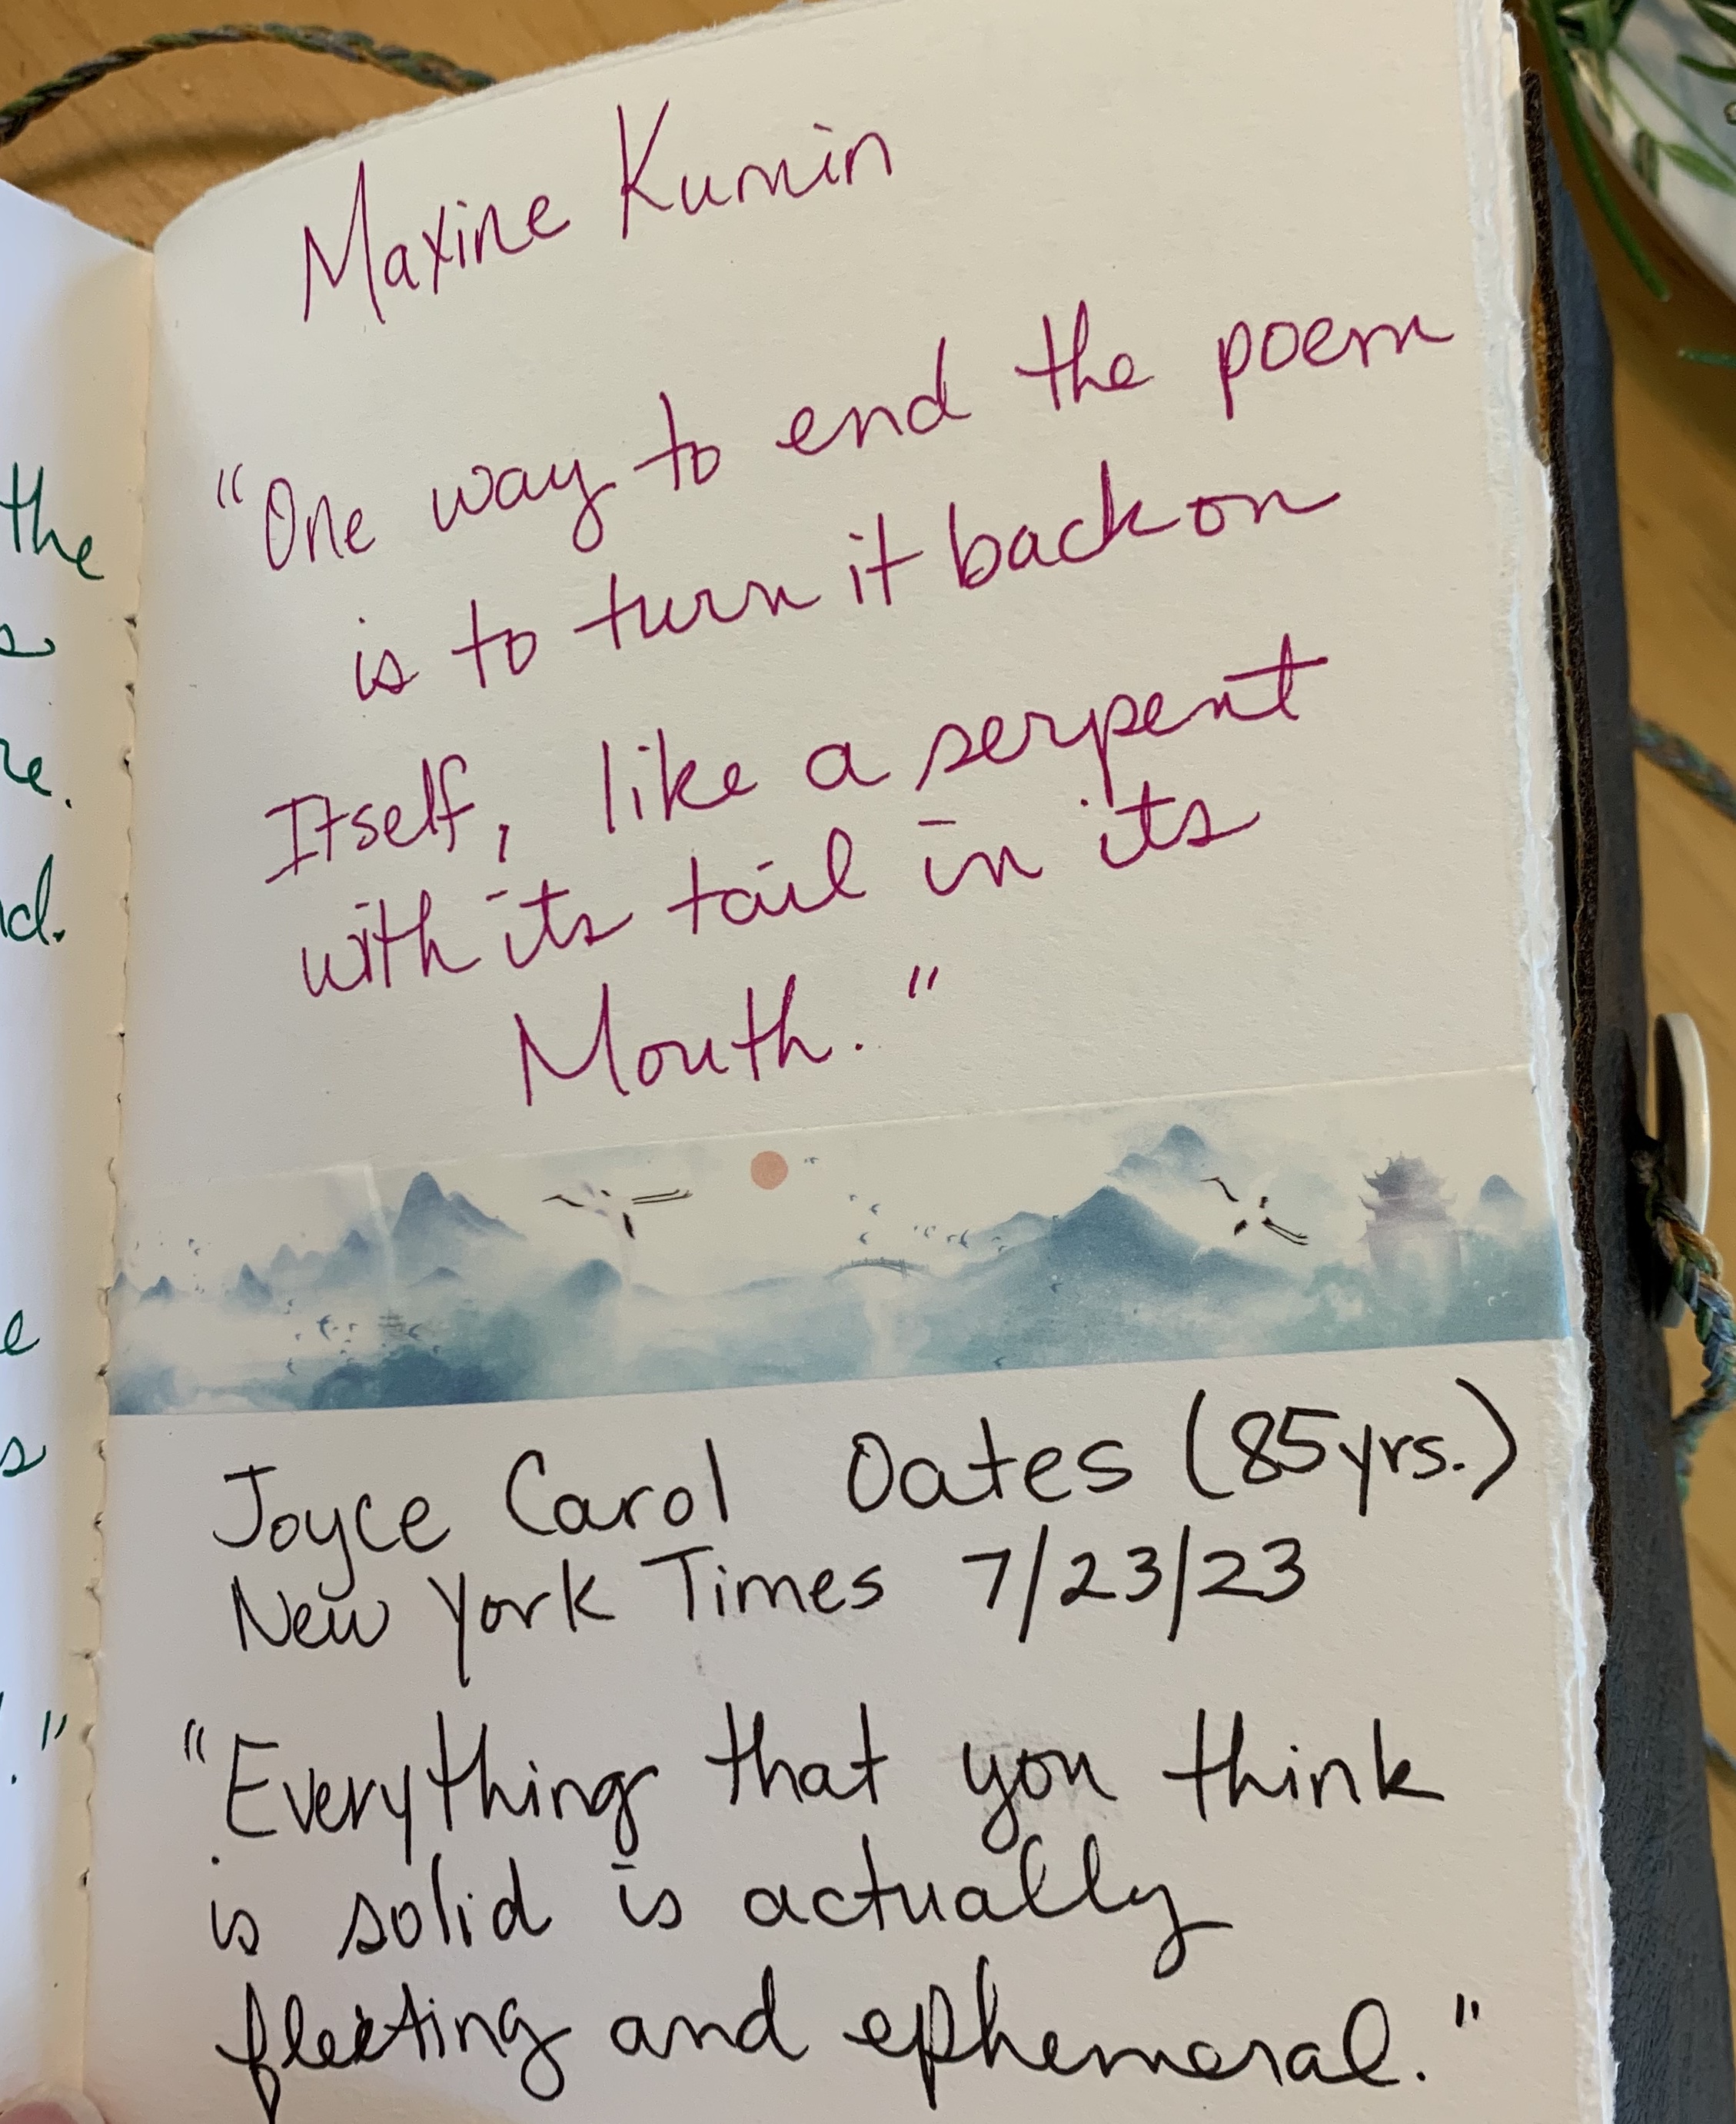 the
s
re.
nd.
e
s
."
Maxine Kumin
"One way to end the poem
is to turn it back on
Itself, like a serpent
with its tail in its
Mouth."
Joyce Carol Oates (85yrs.)
New York Times 7/23/23
"Everything that you think
is solid is actually
fleeting and ephemeral."